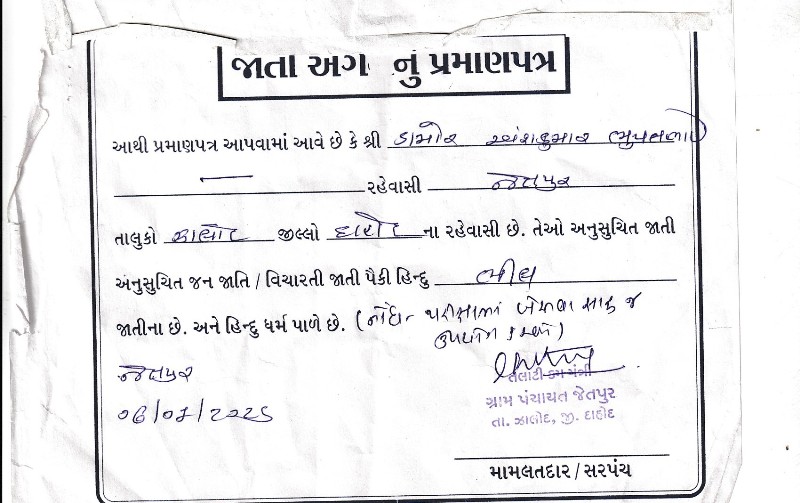 જાતા અગ નું પ્રમાણપત્ર
આથી પ્રમાણપત્ર આપવામાં આવે છે કે શ્રી ડામોર અંશકુમાર ભુપતભાઇ
રહેવાસી જેતપુર
તાલુકો ઝાલોદ જીલ્લો દાહોદ ના રહેવાસી છે. તેઓ અનુસુચિત જાતી
અંનુસુચિત જન જાતિ / વિચારતી જાતી પૈકી હિન્દુ ભીલ
જાતીના છે. અને હિન્દુ ધર્મ પાળે છે. (નોંધ:- પરીક્ષામાં બેસવા સારૂ જ
ઉપયોગ કરવો)
જેતપુર
તલાટી કમ મંત્રી
ગ્રામ પંચાયત જેતપુર
તા. ઝાલોદ, જી. દાહોદ
મામલતદાર / સરપંચ